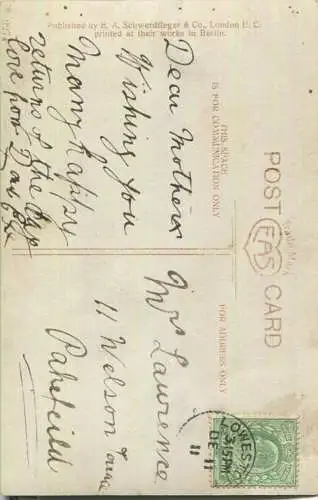 Published by E. A. Schwerdtfeger & Co., London E. C.
printed at their works in Berlin.
POST CARD
EAS
Trade Mark
THIS SPACE
IS FOR COMMUNICATION ONLY
FOR ADDRESS ONLY
Dear Mother
Wishing you
Many Happy
returns of the Day
love from
Mrs Lawrence
11 Nelson
Pakefeild
LOWEST
3.15PM
DE 11
11